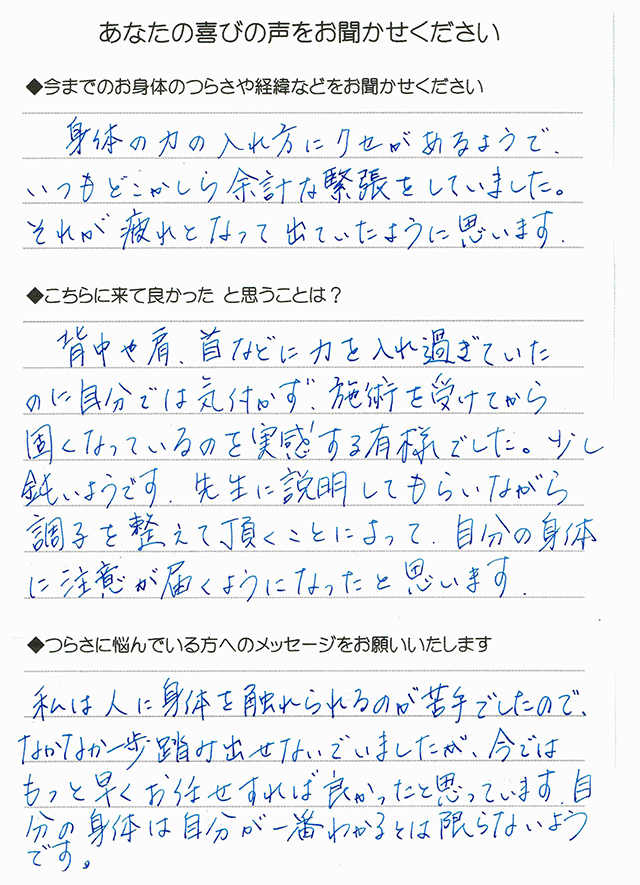 あなたの喜びの声をお聞かせください
◆今までのお身体のつらさや経緯などをお聞かせください
身体の力の入れ方にクセがあるようで、
いつもどこかしら余計な緊張をしていました。
それが疲れとなって出ていたように思います.
◆こちらに来て良かった と思うことは？
背中や肩、首などに力を入れ過ぎていた
のに自分では気付かず、施術を受けてから
固くなっているのを実感する有様でした。少し
鈍いようです. 先生に説明してもらいながら
調子を整えて頂くことによって、自分の身体
に注意が届くようになったと思います.
◆つらさに悩んでいる方へのメッセージをお願いいたします
私は人に身体を触れられるのが苦手でしたので、
なかなか一歩踏み出せないでいましたが、今では
もっと早くお任せすれば良かったと思っています. 自
分の身体は自分が一番わかるとは限らないよう
です。